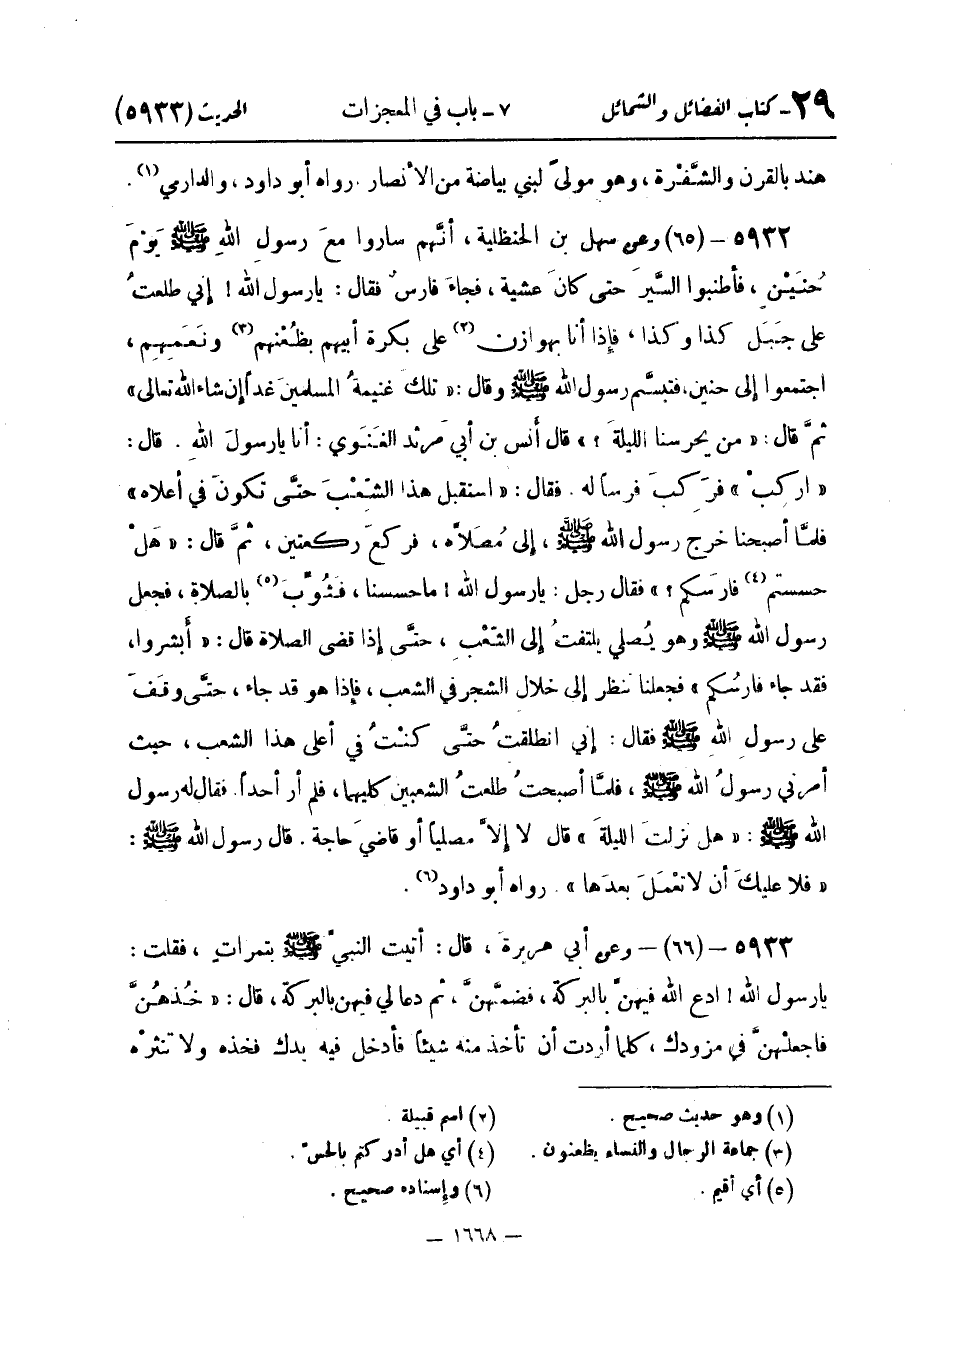 ٢٩ ـ كتاب الفضائل والشمائل ٧ ـ باب في المعجزات الحديث (٥٩٣٣)
هند بالقرن والشَّفْرة ، وهو مولىً لبني بياضة من الأنصار . رواه أبو داود ، والدارمي(١) .
٥٩٣٢ – (٦٥) وعن سهل بن الحنظلية ، أنَّهم ساروا معَ رسولِ اللهِ ﷺ يَوْمَ
حُنَيْنٍ ، فأطنبوا السَّيرَ حتى كانَ عشية ، فجاءَ فارسٌ فقال : يا رسول الله ! إني طلعتُ
على جَبَلَ كذا وكذا ، فإذا أنا بهوازن(٢) على بكرة أبيهم بظُعْنهم(٣) ونَعَمِهِم ،
اجتمعوا إلى حنين ، فتبسَّم رسول الله ﷺ وقال : « تلكَ غنيمةُ المسلمينَ غداً إن شاء الله تعالى »
ثمَّ قال : « من يحرسنا الليلةَ ؟ » قال أنس بن أبي مَرثد الغَنَوي : أنا يا رسولَ اللهِ . قال :
« اركبْ » فرَكبَ فرساً له . فقال : « استقبل هذا الشِّعْبَ حتَّى تكونَ في أعلاه »
فلمَّا أصبحنا خرج رسول الله ﷺ ، إلى مُصَلاَّه ، فركعَ ركعتين ، ثمَّ قال : « هَلْ
حسستم(٤) فارسَكم ؟ » فقال رجل : يا رسول الله ! ما حسسنا ، فثُوِّبَ(٥) بالصلاة ، فجعل
رسول الله ﷺ وهو يُصلي يلتفتُ إلى الشِّعْبِ ، حتَّى إذا قضى الصلاة قال : « أبشروا ،
فقد جاء فارسُكم » فجعلنا ننظر إلى خلال الشجر في الشعب ، فإذا هو قد جاء ، حتَّى وقفَ
على رسولِ اللهِ ﷺ فقال : إني انطلقتُ حتَّى كنتُ في أعلى هذا الشعب ، حيث
أمرني رسولُ الله ﷺ ، فلمَّا أصبحتُ طلعتُ الشعبين كليهما ، فلم أر أحداً . فقال له رسول
الله ﷺ : « هل نزلتَ الليلةَ » قال لا إلاَّ مصلياً أو قاضيَ حاجة . قال رسول الله ﷺ :
« فلا عليكَ أن لا تعْمَلَ بعدَها » . رواه أبو داود(٦) .
٥٩٣٣ – (٦٦) – وعن أبي هريرةَ ، قال : أتيت النبيَّ ﷺ بتمراتٍ ، فقلت :
يا رسول الله ! ادع الله فيهنَّ بالبركة ، فضمَّهنَّ ، ثم دعا لي فيهن بالبركة ، قال : « خُذهُنَّ
فاجعلْهنَّ في مزودك ، كلما أردت أن تأخذ منه شيئاً فأدخل فيه يدك فخذه ولا تنثرْه
(١) وهو حديث صحيح . (٢) اسم قبيلة .
(٣) جماعة الرجال والنساء يظعنون . (٤) أي هل أدركتم بالحسّ .
(٥) أي أقيم . (٦) وإسناده صحيح .
– ١٦٦٨ –